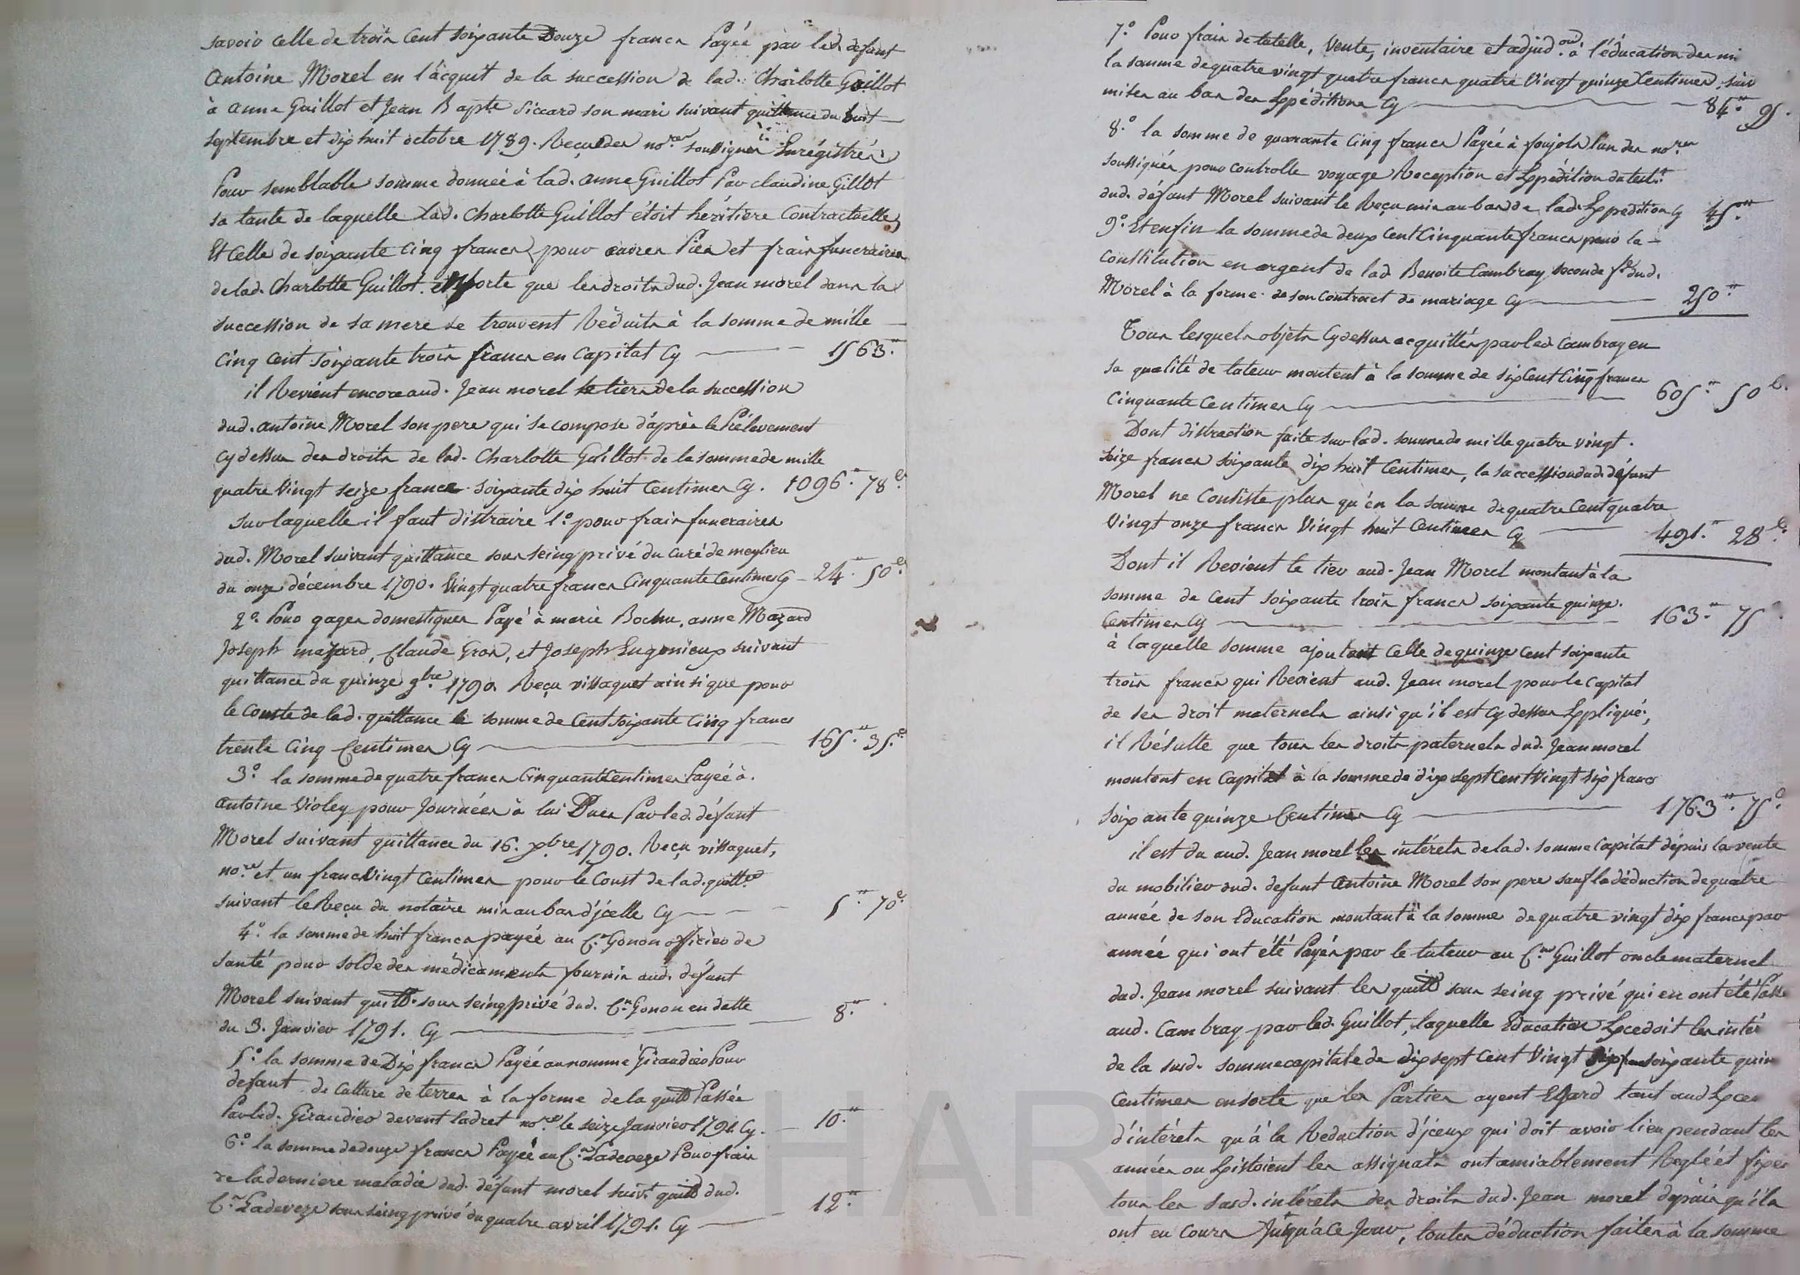 savoir celle de trois cent soixante Douze francs Payée par led. défunt
Antoine Morel en l'acquit de la succession de lad. Charlotte Guillot
à Anne Guillot et Jean Bapte. Siccard son mari suivant quittance du huit
septembre et dix huit octobre 1789. Reçu des nores. soussignés Enrégistrés
Pour semblable somme donnée à lad. Anne Guillot Par claudine Gillot
sa tante de laquelle Lad. Charlotte Guillot étoit héritière Contractuelle,
Et Celle de soixante Cinq francs pour œuvres Pies et frais funéraires
de lad. Charlotte Guillot. en sorte que les droits dud. Jean morel dans la
succession de sa mere se trouvent Réduits à la somme de mille
Cinq Cent soixante trois francs en Capital Cy 1563.
il Revient encore aud. Jean morel le tiers de la succession
dud. antoine Morel son pere qui se compose d'après le Prélevement
Cy dessus des droits de lad. Charlotte Guillot de la somme de mille
quatre Vingt seize francs soixante dix huit Centimes Cy. 1096. 78c.
sur laquelle il faut distraire 1.o pour frais funeraires
dud. Morel suivant quittance sous seing privé du curé de meylieu
du onze décembre 1790. Vingt quatre francs Cinquante Centimes Cy 24. 50c.
2.o Pour gages domestiques Payé à marie Bochu, anne Mazard
Joseph mazard, Claude Gron, et Joseph Eugénieux suivant
quittance du quinze 9bre 1790. Reçu vissaguet ainsi que pour
le Couste de lad. quittance la somme de Cent soixante Cinq francs
trente Cinq Centimes Cy 165. 35c.
3.o la somme de quatre francs Cinquante Centimes Payée à
antoine Violey pour Journées à lui Dues Par led. défunt
Morel suivant quittance du 16. xbre 1790. Reçu vissaguet,
nore. et un franc Vingt Centimes pour le Coust de lad. quittce
suivant le Reçu du notaire mis au bas d'jcelle Cy 5 70c.
4.o la somme de huit francs payée au Cen. Gonon officier de
santé pour solde des médicaments fournis aud. défunt
Morel suivant quitte. sous seing privé dud. Cen. Gonon en datte
du 3. Janvier 1791. Cy 8.
5.o la somme de Dix francs Payée au nommé Giraudier Pour
defaut de Culture de terres à la forme de la quitte Passée
Par led. Giraudier devant ladret nore. le seize Janvier 1791. Cy. 10.
6.o la somme de douze francs Payée au Cen. Ladeveze Pour frais
de la derniere maladie dud. défunt morel suivt. quitte dud.
Cen. Ladeveze sous seing privé du quatre avril 1791. Cy 12.
7.o Pour frais de tutelle, Vente, inventaire et adjud.on à l'éducation des mi
la somme de quatre vingt quatre francs quatre Vingt quinze Centimes, suiv
mises au bas des Expéditions Cy 84. 95.
8.o la somme de quarante Cinq francs Payée à foujols l'un des nores
soussignés pour controlle voyage Réception et Expédition du testt.
dud. défunt Morel suivant le Reçu mis au bas de lad. Expédition Cy 45.
9.o Et enfin la somme de deux Cent Cinquante francs pour la
Constitution en argent de lad. Benoite Cambray seconde fe. dud.
Morel à la forme de son Contract de mariage Cy 250.
Tous lesquels objets Cy dessus acquittés par led. Cambray en
sa qualité de tuteur montent à la somme de six Cent Cinq francs
Cinquante Centimes Cy 605. 50c.
Dont distraction faite sur lad. somme de mille quatre vingt
seize francs soixante dix huit Centimes, la succession dud. défunt
Morel ne Consiste plus qu'en la somme de quatre Cent quatre
Vingt onze francs Vingt huit Centimes Cy 491. 28c.
Dont il Revient le tiers aud. Jean Morel montant à la
somme de Cent soixante trois francs soixante quinze
Centimes Cy 163. 75c
à laquelle somme ajoutant Celle de quinze Cent soixante
trois francs qui Revient aud. Jean morel pour le Capital
de ses droit maternels ainsi qu'il est Cy dessus Expliqué,
il Résulte que tous les droits paternels dud. Jean morel
montent en Capital à la somme de dix sept Cent Vingt six francs
soixante quinze Centimes Cy 1763. 75c.
il est du aud. Jean morel les intérêts de lad. somme Capital depuis la vente
du mobilier dud. defunt Antoine Morel son pere sauf la déduction de quatre
année de son Education montant à la somme de quatre vingt dix francs par
année qui ont été Payés par le tuteur au Cen. Guillot oncle maternel
dud. Jean morel suivant les quitte sous seing privé qui en ont été Passé
aud. Cambray par led. Guillot, laquelle Education Excedoit les intér
de la susd. somme capitale de dix sept Cent Vingt six francs soixante quin
Centimes ensorte que les Parties ayent Egard tant aud. Exces
d'intérets qu'à la Reduction d'jceux qui doit avoir lieu pendant les
années ou Existoient les assignats ont amiablement Reglé et fixer
tous les susd. intérets des droits dud. Jean morel depuis qu'ils
ont eu Cours Jusqu'à Ce Jour, toutes déduction faites à la somme